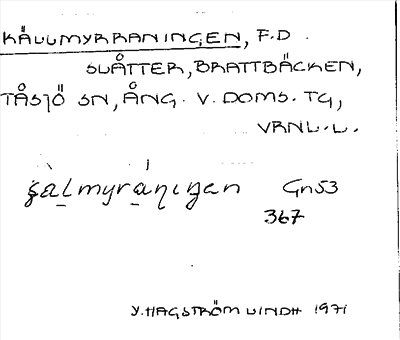 KÄLLMYRRANINGEN, F.D.
SLÅTTER, BRATTBÄCKEN,
TÅSJÖ SN, ÅNG. V. DOMS. TG,
VRNL.L.
Gn53
367
Y. HAGSTRÖM LINDH 1971